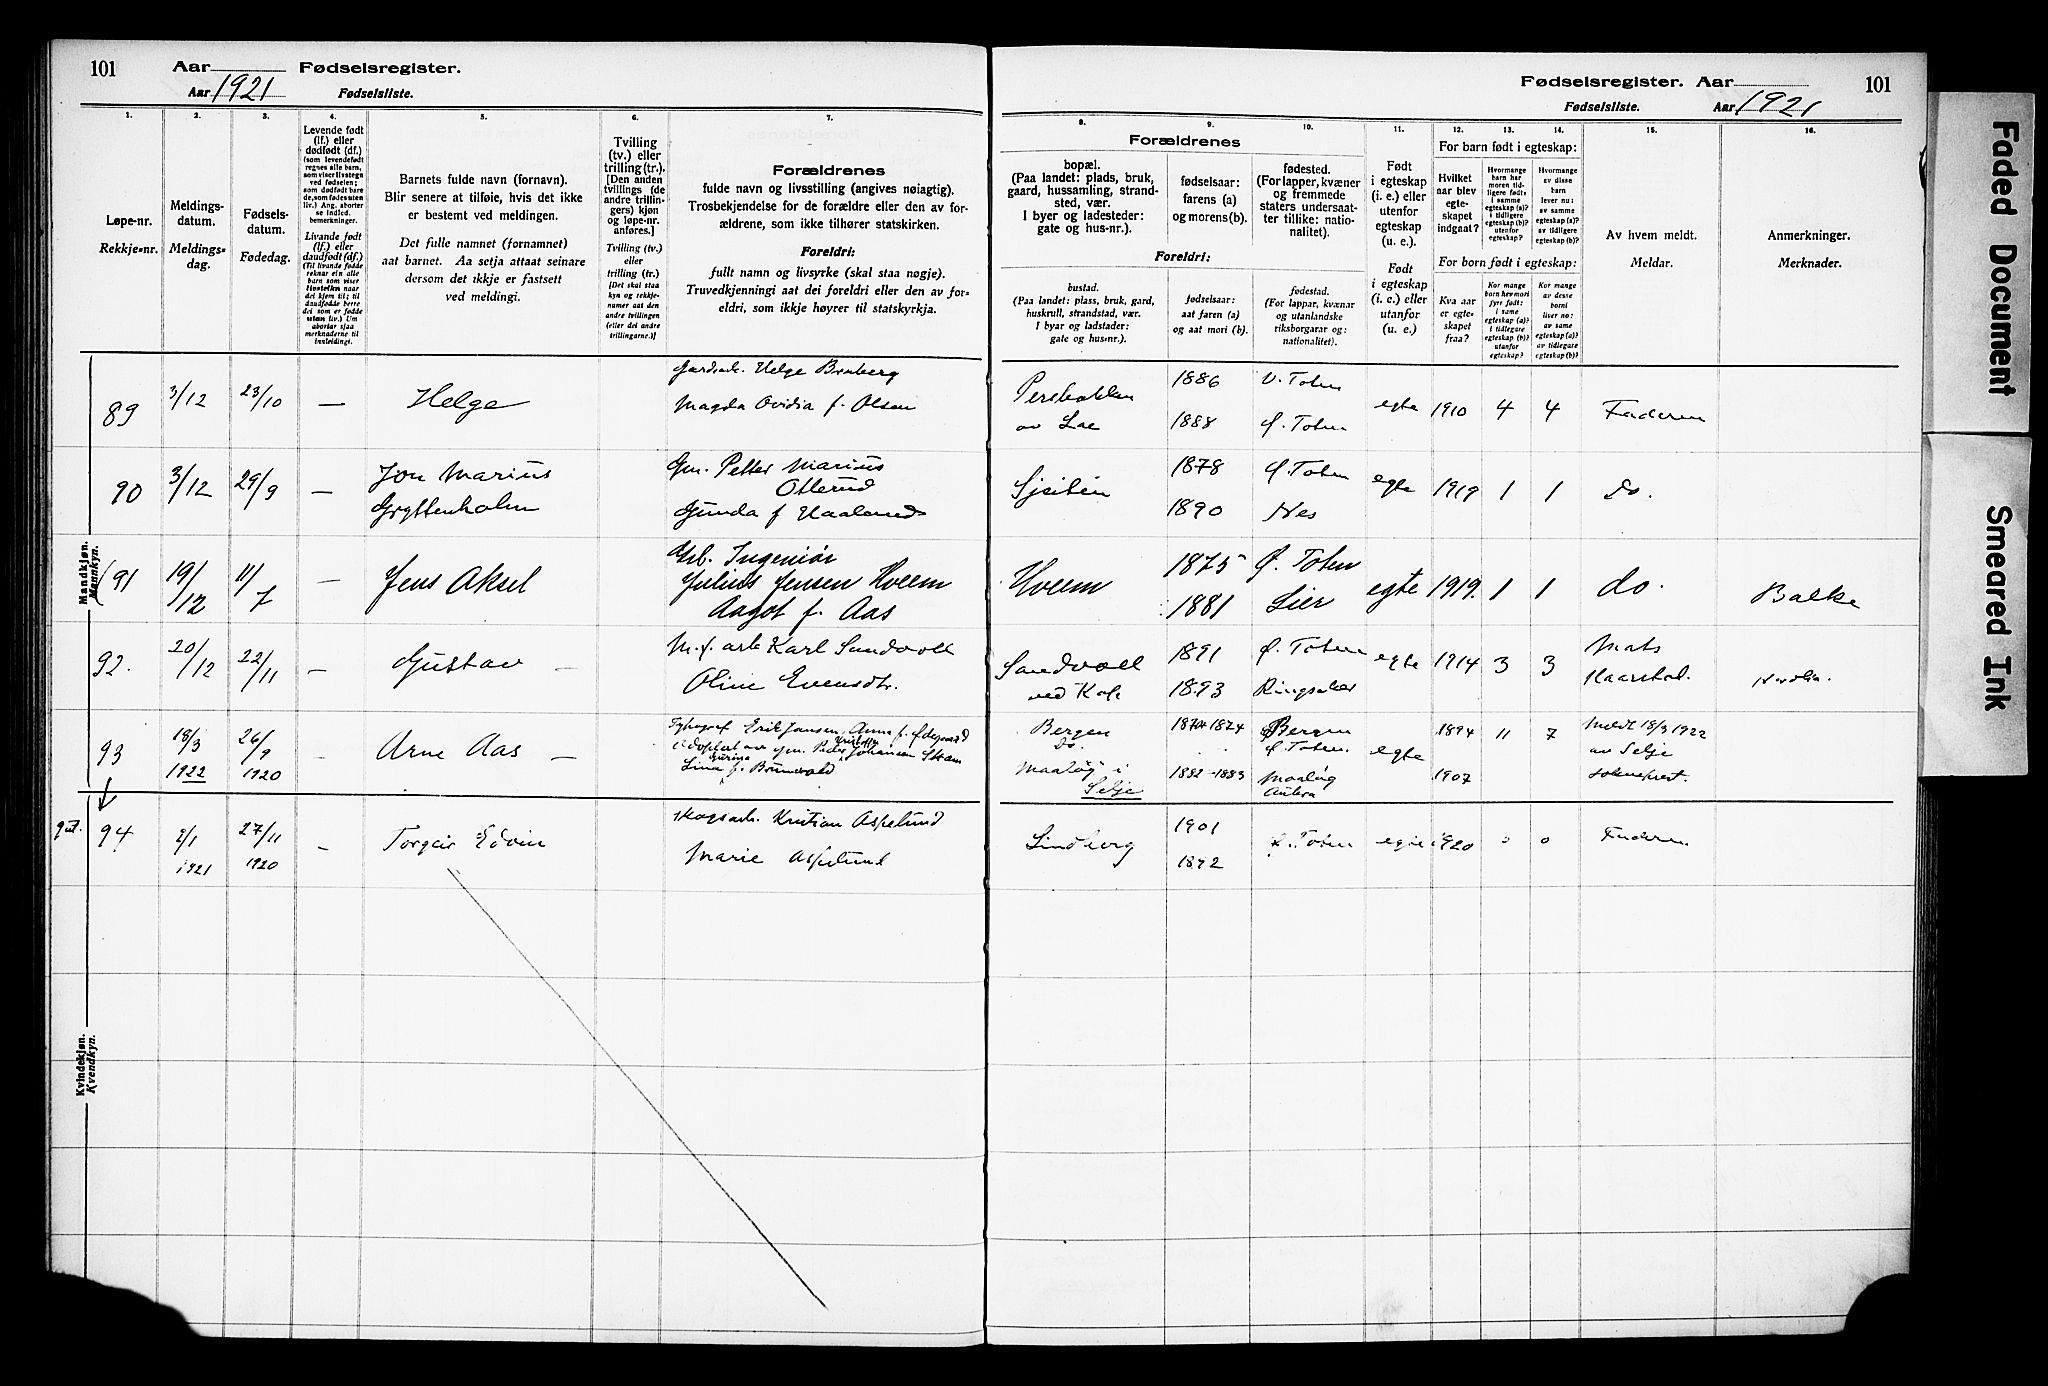 101 Aar Fødselsregister.
Aar 1921 Fødselsliste.
Fødselsregister. Aar 101
Fødselsliste. Aar 1921
1. 2. 3. 4. 5. 6. 7.
Løpe-nr.
Rekkje-nr.
Meldings-
datum.
Meldings-
dag.
Fødsels-
datum.
Fødedag.
Levende født
(lf.) eller
dødfødt (df.)
(som levendefødt
regnes alle barn,
som viser livstegn
ved fødselen;
som dødfødt bare
de, som fødes uten
liv.) Ang. aborter
se indled.
bemerkninger.
Livande født
(lf.) eller
daudfødt (df.)
Barnets fulde navn (fornavn).
Blir senere at tilføie, hvis det ikke
er bestemt ved meldingen.
Det fulle namnet (fornamnet)
aat barnet. Aa setja attaat seinare
dersom det ikkje er fastsett
ved meldingi.
Tvilling
(tv.) eller
trilling (tr.).
[Den anden
tvillings (de
andre trillin-
gers) kjøn
og løpe-nr.
anføres.]
Tvilling (tv.)
eller
trilling (tr.)
[Det skal staa
kyn og rekkje-
namer aat den
andre tvillingen
(eller dei andre
trillingarne.)]
Forældrenes
fulde navn og livsstilling (angives nøiagtig).
Trosbekjendelse for de forældre eller den av for-
ældrene, som ikke tilhører statskirken.
Foreldri:
fullt namn og livsyrke (skal staa nøgje).
Truvedkjenningi aat dei foreldri eller den av for-
eldri, som ikkje høyrer til statskyrkja.
8. 9. 10. 11. 12. 13. 14. 15. 16.
Forældrenes
bopæl.
(Paa landet: plads, bruk,
gaard, hussamling, strand-
sted, vær.
I byer og ladesteder:
gate og hus-nr.).
fødselsaar:
farens (a)
og morens (b).
fødested.
(For lapper, kvæner
og fremmede
staters undersaat-
ter tillike: natio-
nalitet).
Foreldri:
bustad.
(Paa landet: plass, bruk, gard,
huskrull, strandstad, vær.
I byar og ladstader:
gate og hus-nr.).
fødselsaar:
aat faren (a)
og aat mori (b).
fødestad.
(For lappar, kvænar
og utanlandske
riksborgarar og:
nationalitet).
Født
i egteskap
(i. e.) eller
utenfor
egteskap
(u. e.).
Født
i egteskap
(i. e.) eller
utanfor
egteskap
(u. e.).
For barn født i egteskap:
Hvilket
aar blev
egte-
skapet
indgaat?
Hvormange
barn har
moren tid-
ligere født:
i samme
egteskap (a)?
i tidligere
egteskap (b)?
utenfor
egteskap?
Hvormange
av disse
barn
lever nu:
av samme
egteskap (a)?
av tidligere
egteskap (b)?
For born født i egteskap:
Kva aar
er egte-
skapet
fraa?
Kor mange
born hev mori
fyrr født:
i same
egteskap (a)?
i tidlegare
egteskap (b)?
utanfor
egteskap?
Kor mange
av desse
borni
liver no:
av same
egteskap (a)?
av tidlegare
egteskap (b)?
Av hvem meldt.
Meldar.
Anmerkninger.
Merknader.
Mandkjøn.
Mannkyn.
Kvindekjøn.
Kvendkyn.
89 3/12 23/10 — Helge
Gardsarb. Helge Bruberg
Magda Ovidia f. Olsen
Persbakken
av Lae
1886 V. Toten
1888 Ø. Toten
egte 1910 4 4 Faderen
90 3/12 29/9 — Jon Marius
Gryttenholm
Gm. Petter Marius
Otterud
Gunda f Haaland
1878 Ø. Toten
1890 Nes
egte 1919 1 1 Do.
91 19/12 11/7 — Jens Aksel
Gb. Ingeniør
Julius Jensen Hveem
Aagot f. Aas
Hveem
1875 Ø. Toten
1881 Lier
egte 1919. 1 1 do. Balke
92. 20/12 22/11 — Gustav —
M.f. arb Karl Sandvoll
Oline Evensdtr.
Sandvoll
ved Kolb
1891 Ø. Toten
1893 Ringsaker
egte 1914 3 3 Mats
Kaarstad. Nordlia.
93 18/3 1922 26/9 1920 — Arne Aas —
Typograf Erik Jansen, Anna f. Ødegaard
Adoptert av gm. Peder Kristoffer Johansen Stham
Lina Gurina f. Brunvold
Bergen
Do.
Maaløy i
Selje
1874-1874 Bergen
Ø. Toten.
1882-1883 Maaløy
egte 1894 11 7
1907
Meldt 18/3 1922
av Selje
sokneprest.
94 2/1 1921 27/11 1920 — Torgeir Edvin
Skogsarb. Kristian Aspelund
Marie Aspelund
Lindberg
1901
1892
Ø. Toten egte 1920 0 0 Faderen
Faded Document
Smeared Ink